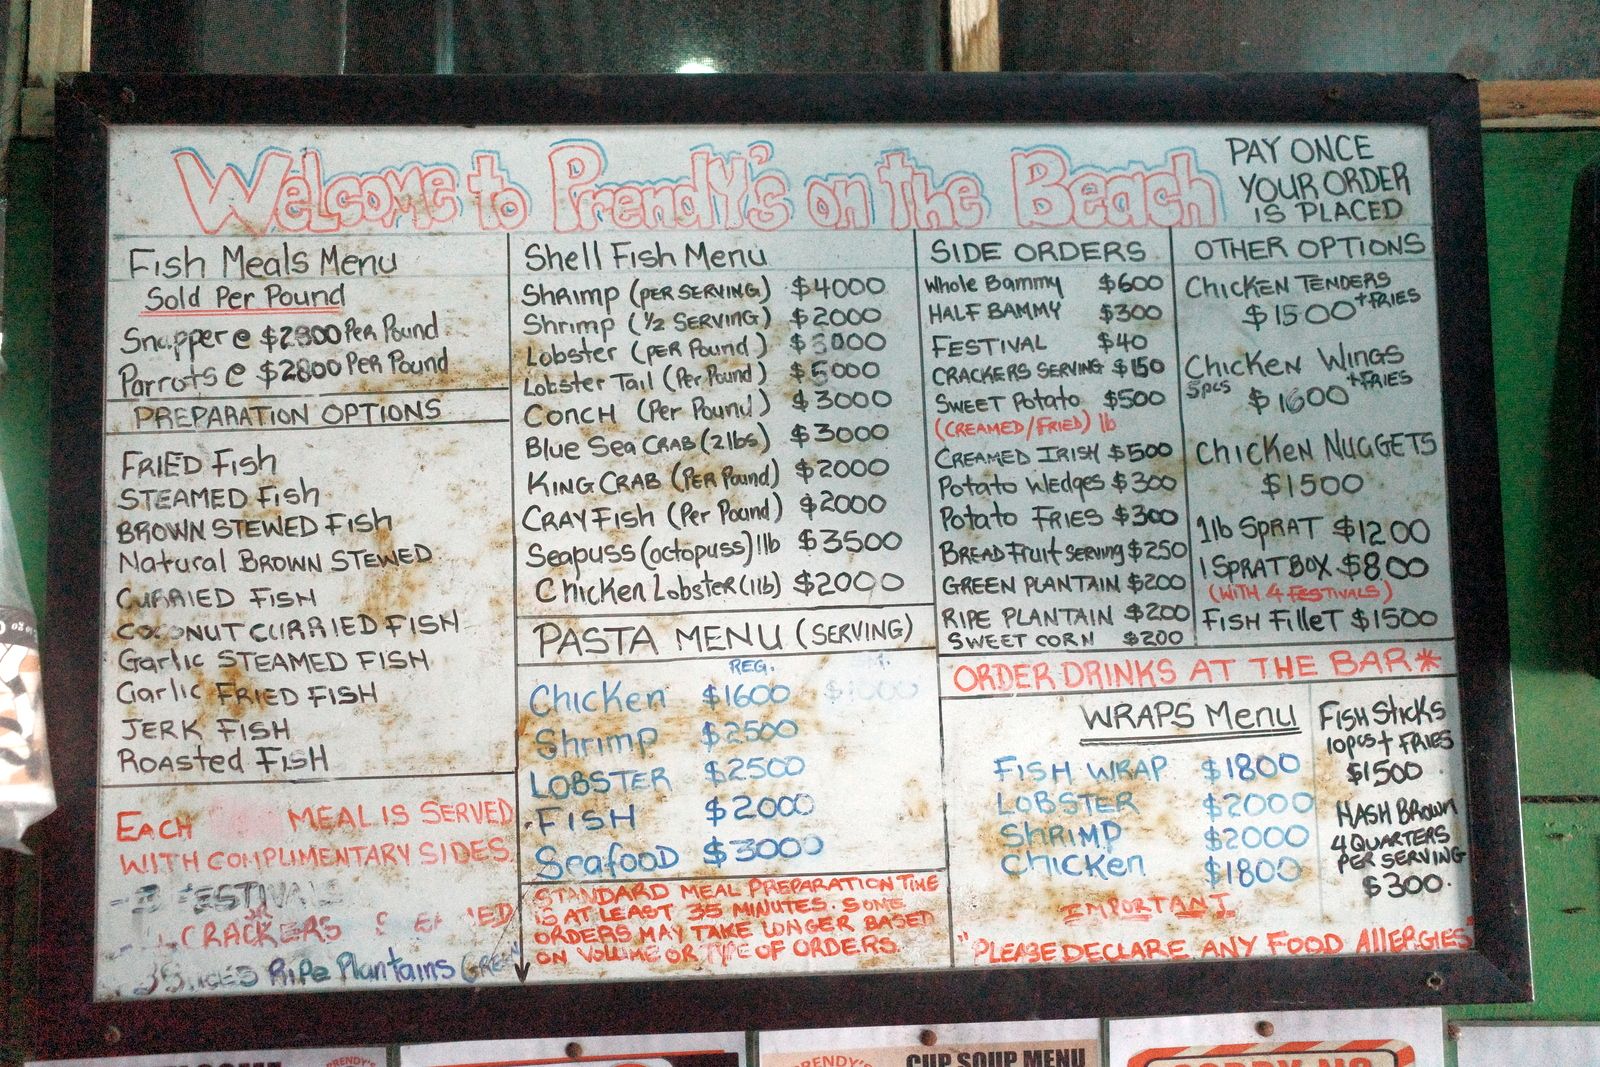 Welcome to Prendy's on the Beach
PAY ONCE
YOUR ORDER
IS PLACED
Fish Meals Menu
Sold Per Pound
Snapper @ $2800 Per Pound
Parrots @ $2800 Per Pound
PREPARATION OPTIONS
FRIED Fish
STEAMED Fish
BROWN STEWED FISH
Natural BROWN STEWED
CURRIED FISH
COCONUT CURRIED FISH
Garlic STEAMED FISH
Garlic FRIED FISH
JERK FISH
Roasted FISH
EACH MEAL IS SERVED
WITH COMPLIMENTARY SIDES
FESTIVALS
OR
CRACKERS
Ripe Plantains GREEN
Shell Fish Menu
Shrimp (PER SERVING) $4000
Shrimp (1/2 SERVING) $2000
Lobster (PER Pound) $5000
Lobster Tail (Per Pound) $5000
CONCH (Per Pound) $3000
Blue Sea CRAB (2lbs) $3000
KING CRAB (PER Pound) $2000
CRAYFISH (Per Pound) $2000
Seapuss (octopuss) 1lb $3500
Chicken Lobster (1lb) $2000
PASTA MENU (SERVING)
REG.
Chicken $1600 $1000
Shrimp $2500
LOBSTER $2500
FISH $2000
Seafood $3000
STANDARD MEAL PREPARATION TIME
IS AT LEAST 35 MINUTES. SOME
ORDERS MAY TAKE LONGER BASED
ON VOLUME OR TYPE OF ORDERS.
SIDE ORDERS
Whole Bammy $600
HALF BAMMY $300
FESTIVAL $40
CRACKERS SERVING $150
SWEET Potato $500
(CREAMED/FRIED) lb
CREAMED IRISH $500
Potato Wedges $300
Potato FRIES $300
BREAD Fruit SERVING $250
GREEN PLANTAIN $200
RIPE PLANTAIN $200
SWEET CORN $200
OTHER OPTIONS
CHICKEN TENDERS
$1500 + FRIES
Chicken WINGS
5pcs $1600 + FRIES
CHICKEN NUGGETS
$1500
1lb SPRAT $1200
1 SPRAT BOX $800
(WITH 4 FESTIVALS)
FISH FilleT $1500
ORDER DRINKS AT THE BAR*
WRAPS Menu
FISH WRAP $1800
LOBSTER $2000
SHRIMP $2000
Chicken $1800
FISH STICKS
10pcs + FRIES
$1500
HASH BROWN
4 QUARTERS
PER SERVING
$300.
IMPORTANT
"PLEASE DECLARE ANY FOOD ALLERGIES"
PRENDY'S
PRENDY'S
CUP SOUP MENU